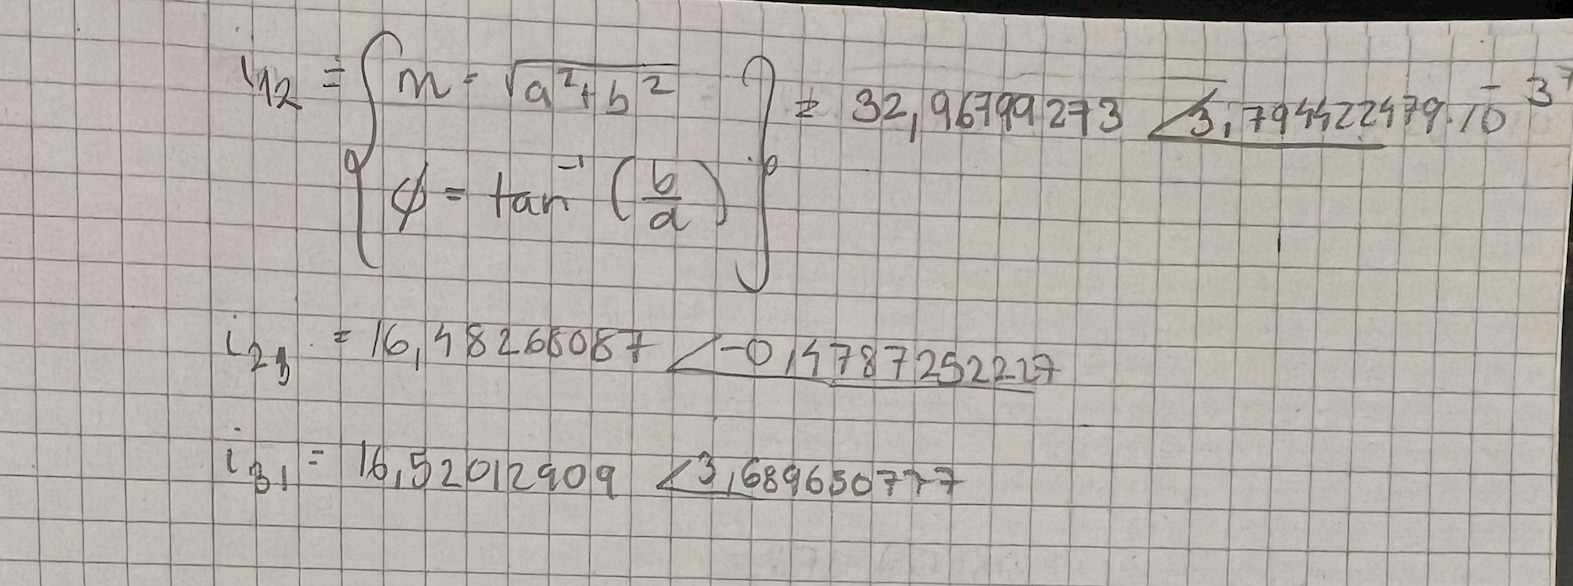 i₁₂ = { m = √(a² + b²) } = 32,96799273 ∠3,794422479·10⁻³
ϕ = tan⁻¹ (b/a)
i₂₃ = 16,48266087 ∠-0,4787252227
i₃₁ = 16,52012909 ∠3,689650777